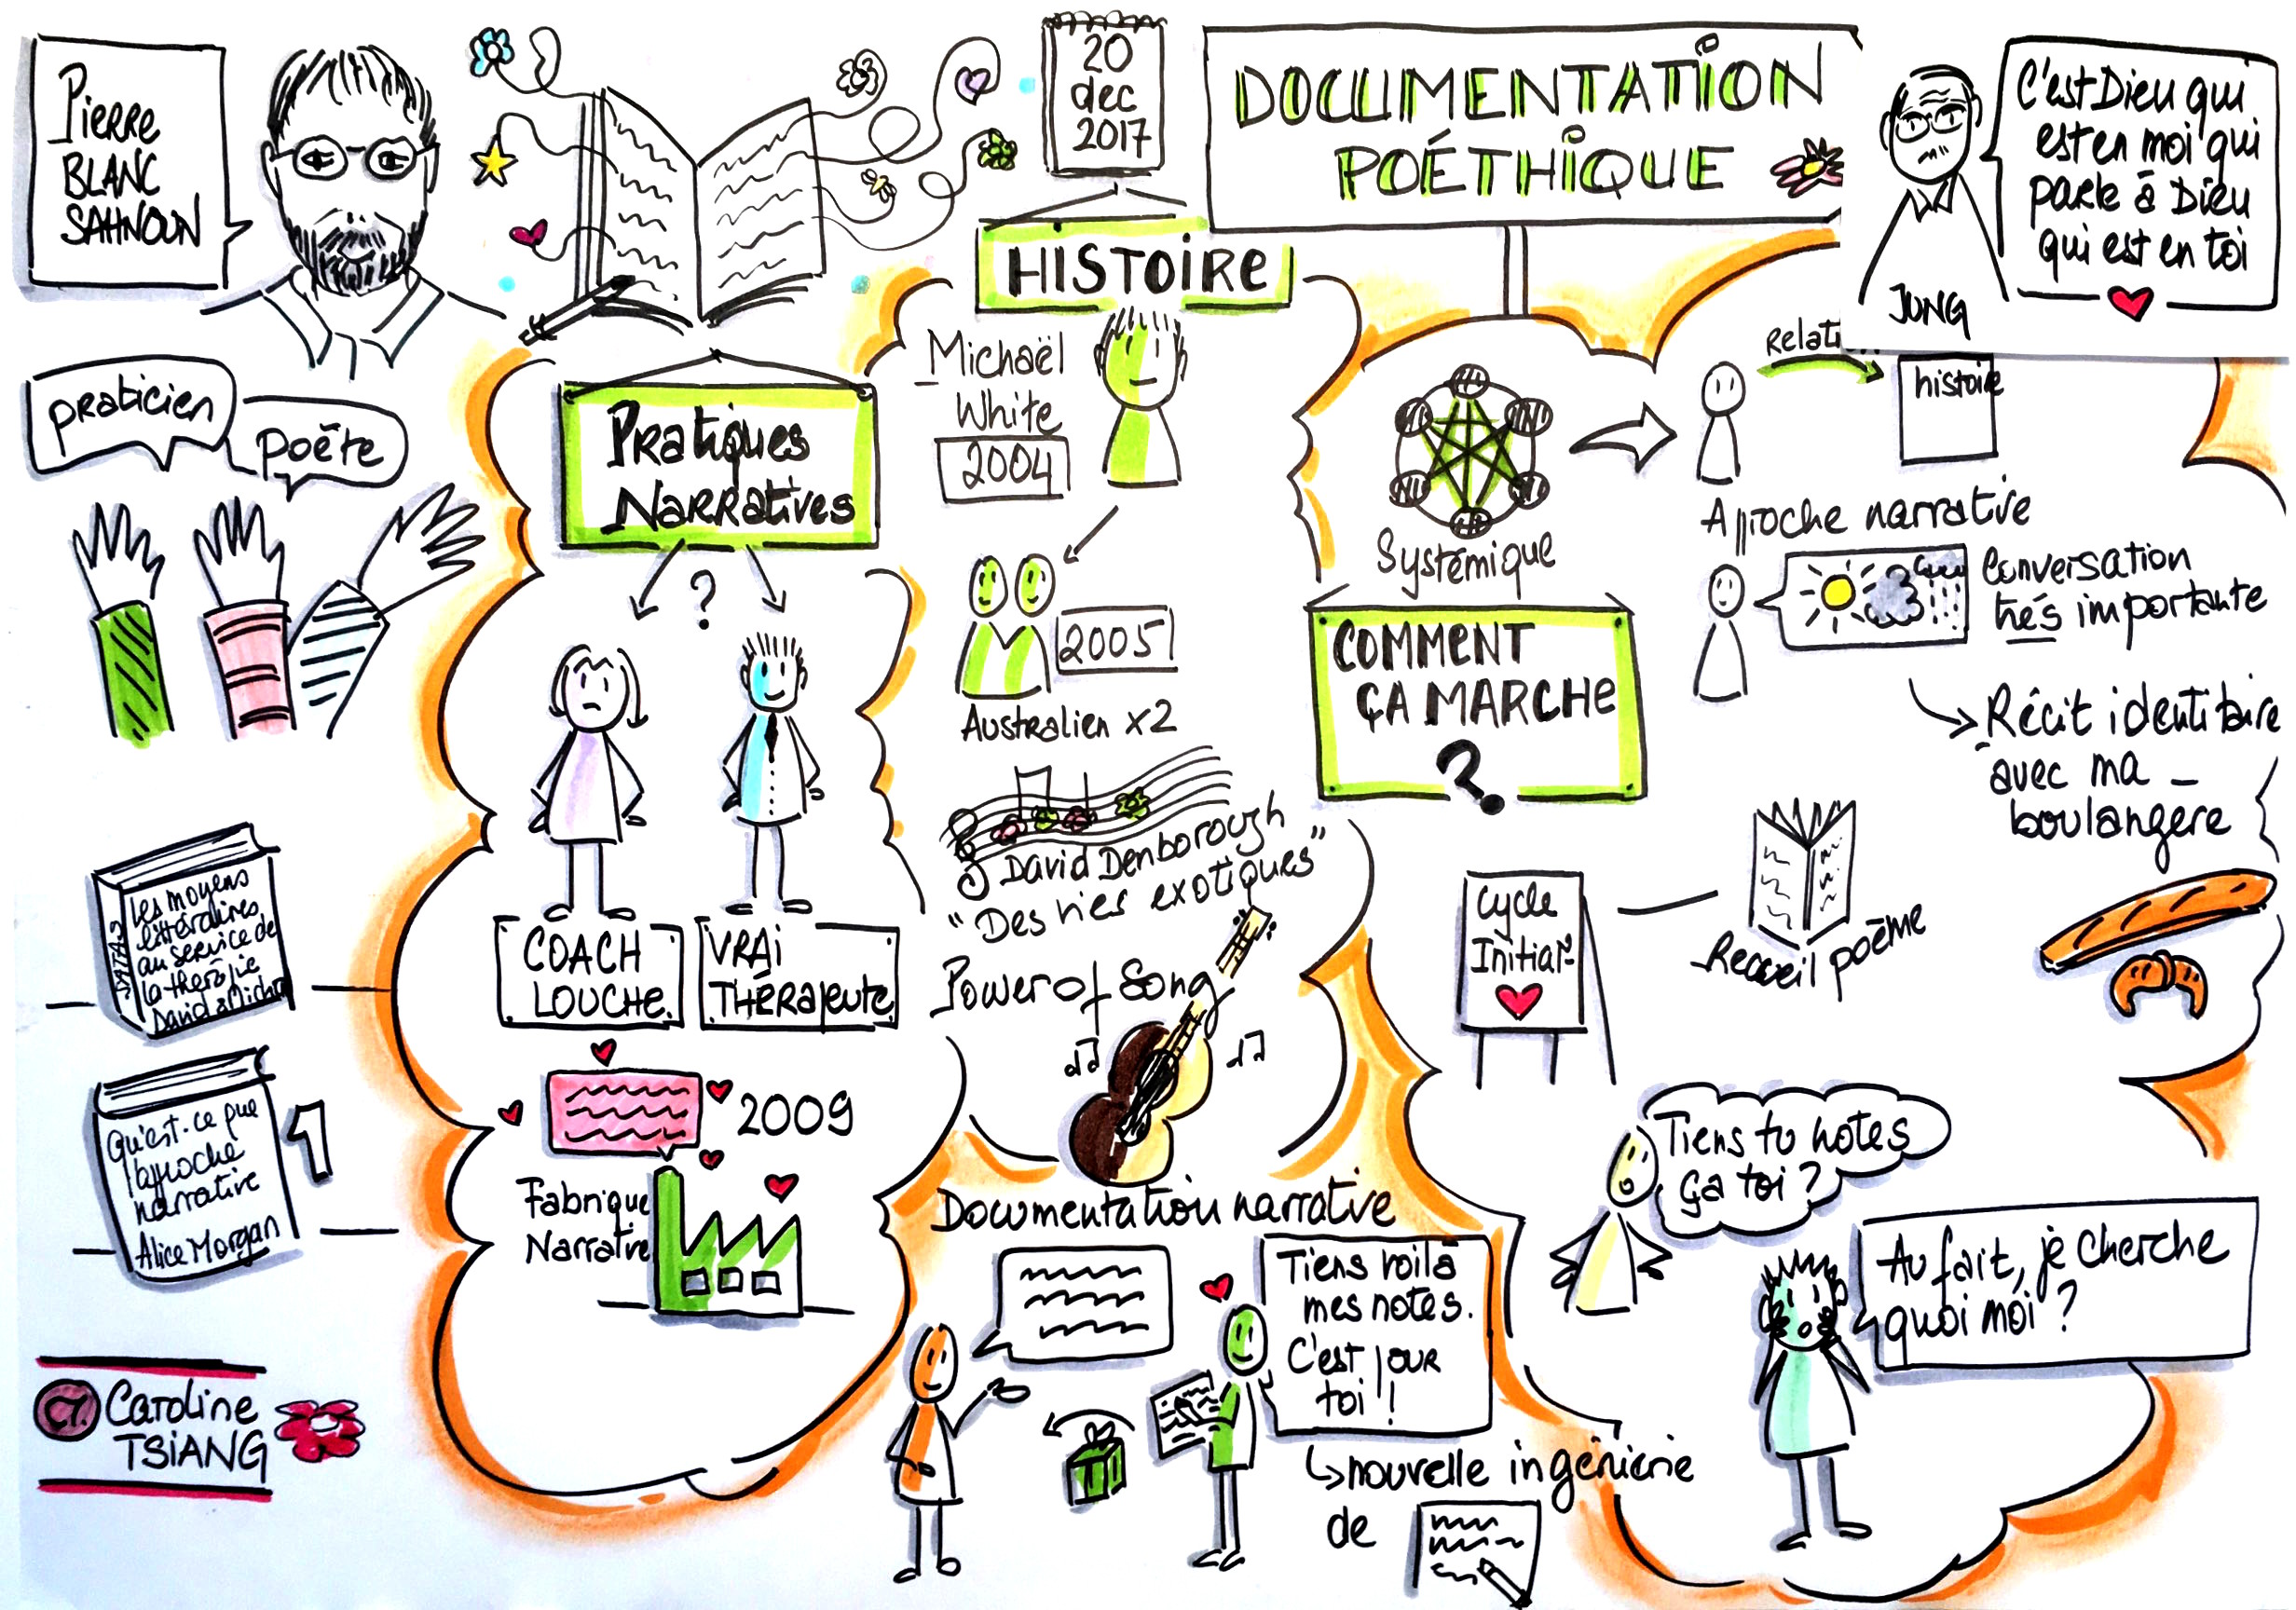 Pierre
BLANC
SAHNOUN
praticien
poète
20
dec
2017
DOCUMENTATION
POÉTHIQUE
C'est Dieu qui
est en moi qui
parle à Dieu
qui est en toi
JUNG
HISTOIRE
Michaël
White
2004
2005
Australien x2
David Denborough
Power of Song
Pratiques
Narratives
?
COACH
LOUCHE.
VRAI
THÉRAPEUTE
2009
Fabrique
Narrative
Les moyens
littéraires
au service de
la thérapie
David &
Qu'est-ce que
l'approche
narrative
Alice Morgan
1
Caroline
TSIANG
Documentation narrative
Tiens voilà
mes notes.
C'est pour
toi !
nouvelle ingénierie
de
Systémique
histoire
Approche narrative
Conversation
très importante
Récit identitaire
avec ma
boulangère
COMMENT
ÇA MARCHE
?
Cycle
Initial
Recueil poème
Tiens tu notes
ça toi ?
Au fait, je cherche
quoi moi ?